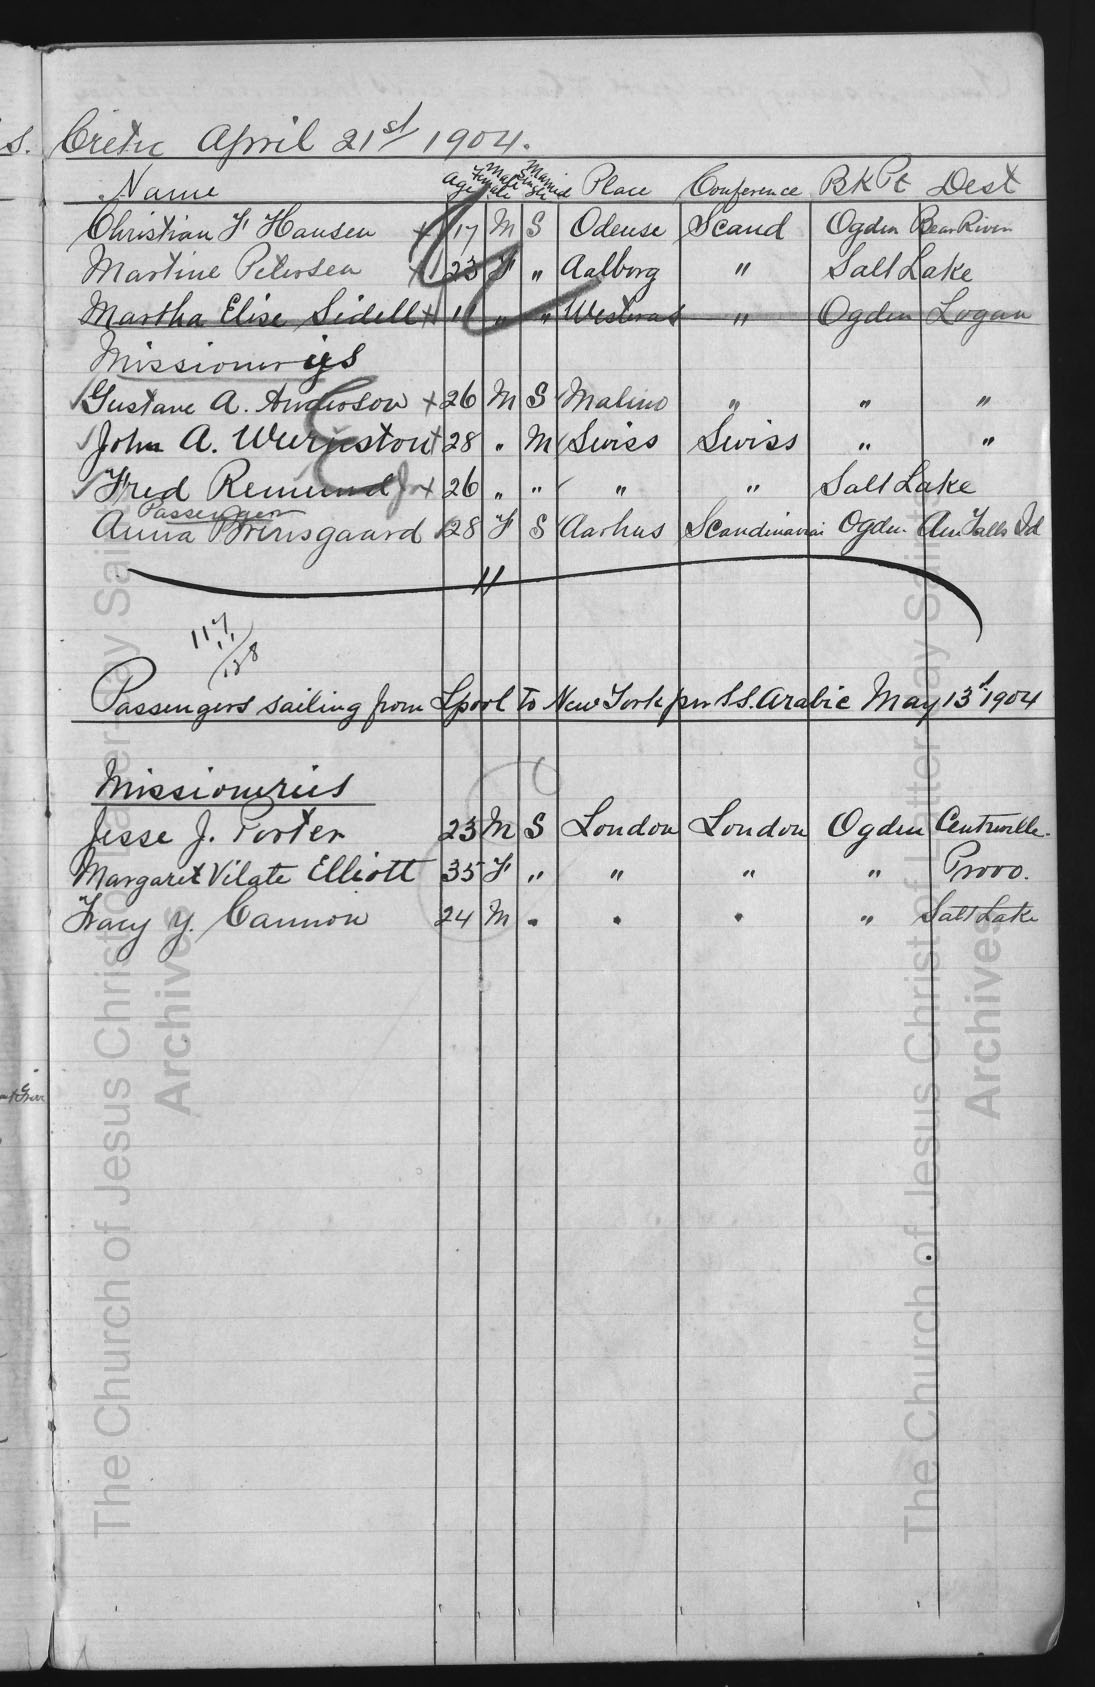 s. Cretic April 21st 1904.
Name Age Male Female Married Single Place Conference BK Pt Dest
Christian F Hansen + 17 M S Odense Scand Ogden Bear River
Martine Petersen + 23 F " Aalborg " Salt Lake
Martha Elise Sidell + 11 " " Westeras " Ogden Logan
Missionaries
Gustave A. Anderson + 26 M S Malmo " " "
John A. Wurnston + 28 " M Swiss Swiss " "
Fred Remund Jr + 26 " " " " Salt Lake
Passenger
Anna Brinsgaard 28 F S Aarhus Scandinavian Ogden Am Falls Id
11
117
11
128
Passengers sailing from Lpool to New York per S.S. Arabic May 13th 1904
Missioneries
Jesse J. Porter 23 M S London London Ogden Centreville.
Margaret Vilate Elliott 35 F " " " " Provo.
Tracy Y. Cannon 24 M " " " " Salt Lake
The Church of Jesus Christ of Latter-day Saints
Archives
The Church of Jesus Christ of Latter-day Saints
Archives